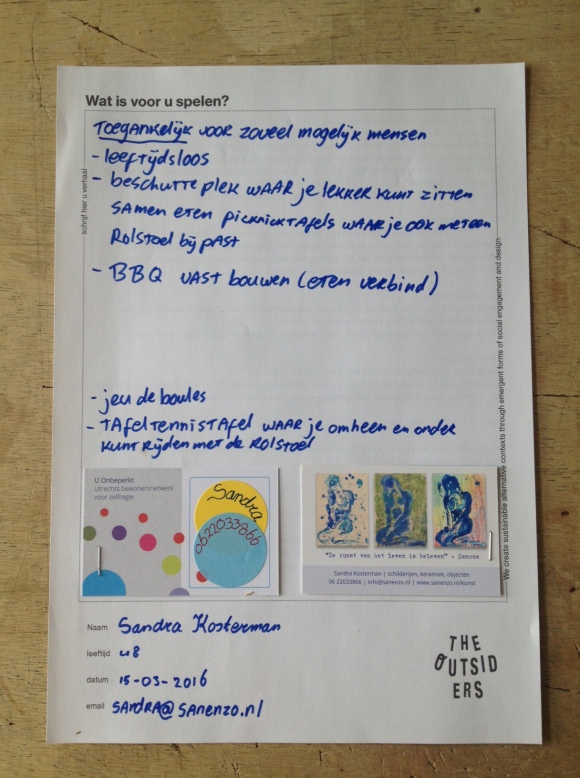 Wat is voor u spelen?
schrijf hier u verhaal
Toegankelijk voor zoveel mogelijk mensen
- leeftijdsloos
- beschutte plek waar je lekker kunt zitten
samen eten picknicktafels waar je ook met een
Rolstoel bij past
- BBQ vast bouwen (eten verbind)
- jeu de boules
- tafeltennistafel waar je omheen en onder
kunt rijden met de Rolstoel
We create sustainable alternative contexts through emergent forms of social engagement and design.
U Onbeperkt
Utrechts bewonersnetwerk
voor zelfregie
Sandra
0622033866
"De kunst van het leven is beleven" - Sanenzo
Sandra Kosterman | schilderijen, keramiek, objecten
06 22033866 | info@sanenzo.nl | www.sanenzo.nl/kunst
Naam Sandra Kosterman
leeftijd 48
datum 15-03-2016
email sandra@sanenzo.nl
THE
OUTSID
ERS